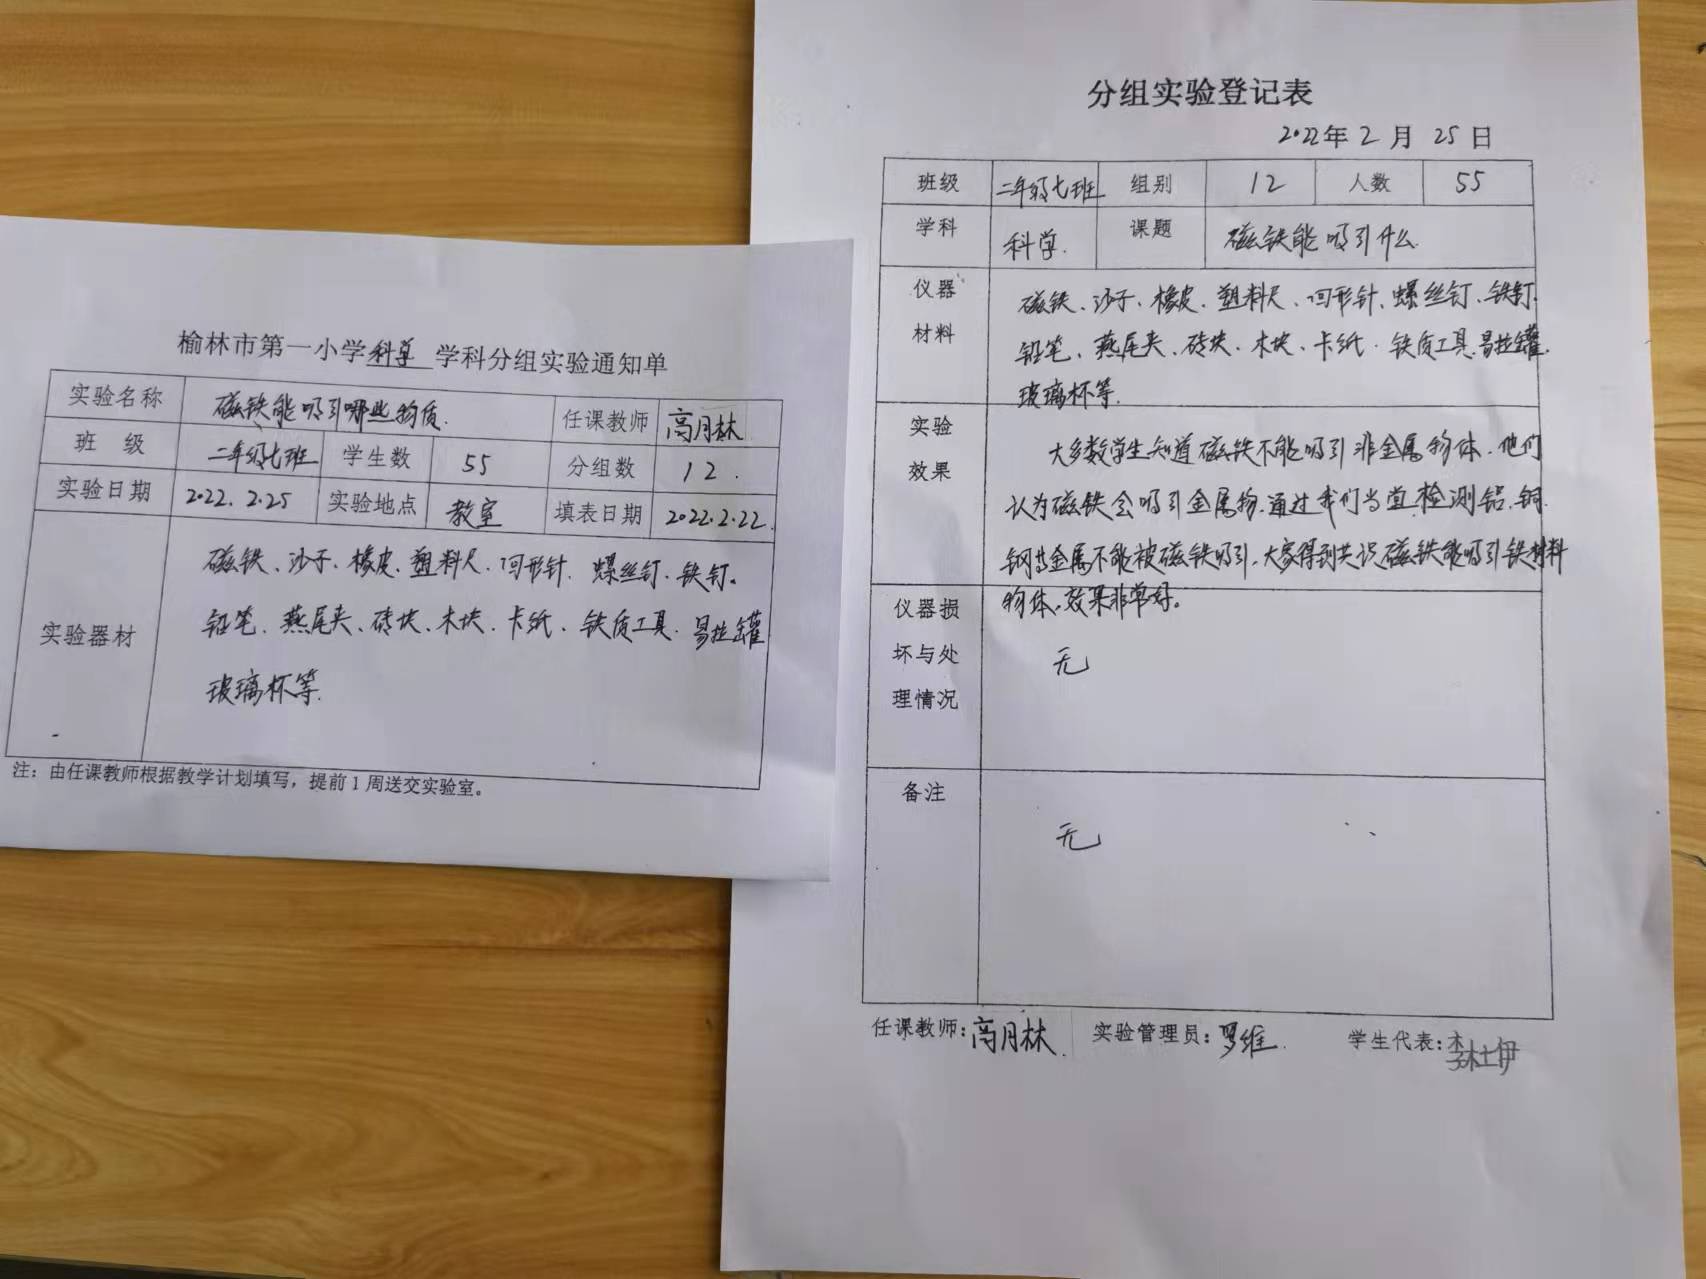 榆林市第一小学科学 学科分组实验通知单
实验名称 磁铁能吸引哪些物质. 任课教师 高月林
班 级 二年级七班 学生数 55 分组数 12.
实验日期 2022.2.25 实验地点 教室 填表日期 2022.2.22.
实验器材
磁铁、沙子、橡皮、塑料尺、回形针、螺丝钉、铁钉。
铅笔、燕尾夹、砖块、木块、卡纸、铁质工具、易拉罐
玻璃杯等.
注：由任课教师根据教学计划填写，提前1周送交实验室。
分组实验登记表
2022年 2 月 25 日
班级 二年级七班 组别 12 人数 55
学科 科学. 课题 磁铁能吸引什么.
仪器
材料
磁铁、沙子、橡皮、塑料尺、回形针、螺丝钉、铁钉.
铅笔、燕尾夹、砖块、木块、卡纸、铁质工具、易拉罐.
玻璃杯等.
实验
效果
大多数学生知道磁铁不能吸引非金属物体，他们
认为磁铁会吸引金属物.通过我们当堂检测铝.铜.
钢等金属不能被磁铁吸引，大家得到共识磁铁能吸引铁材料
物体，效果非常好。
仪器损
坏与处
理情况
无
备注
无
任课教师：高月林. 实验管理员：罗维. 学生代表：